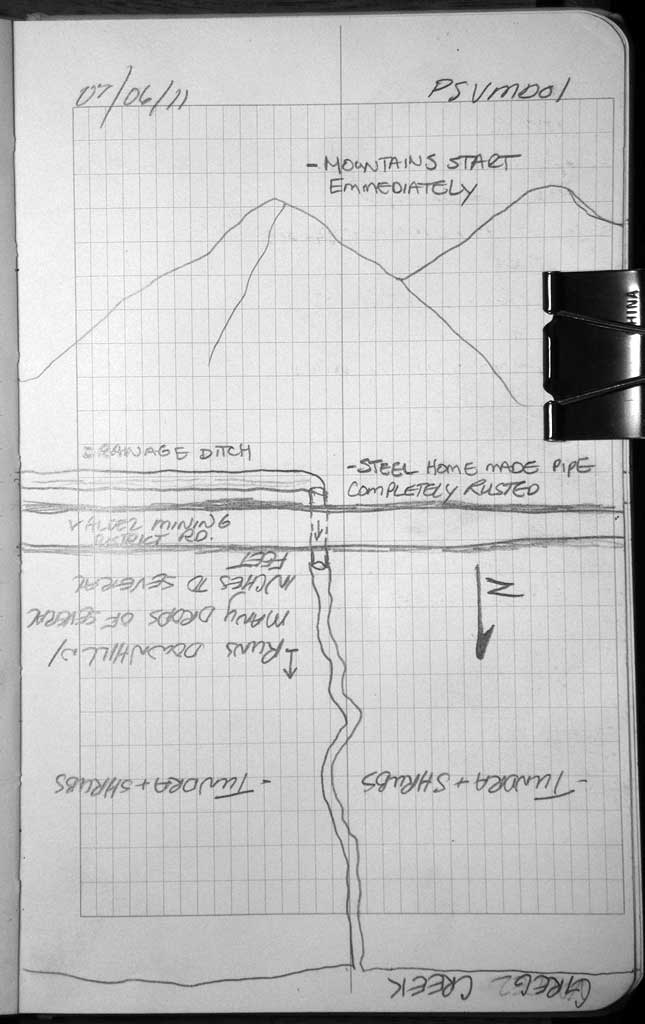 07/06/11
PSVMD01
- MOUNTAINS START
EMMEDIATELY
DRAINAGE DITCH
- STEEL HOME MADE PIPE
COMPLETELY RUSTED
VALDEZ MINING
DISTRICT RD.
N
RUNS DOWNHILL W/
MANY DROPS OF SEVERAL
INCHES TO SEVERAL
FEET
- TUNDRA + SHRUBS
- TUNDRA + SHRUBS
CREEK